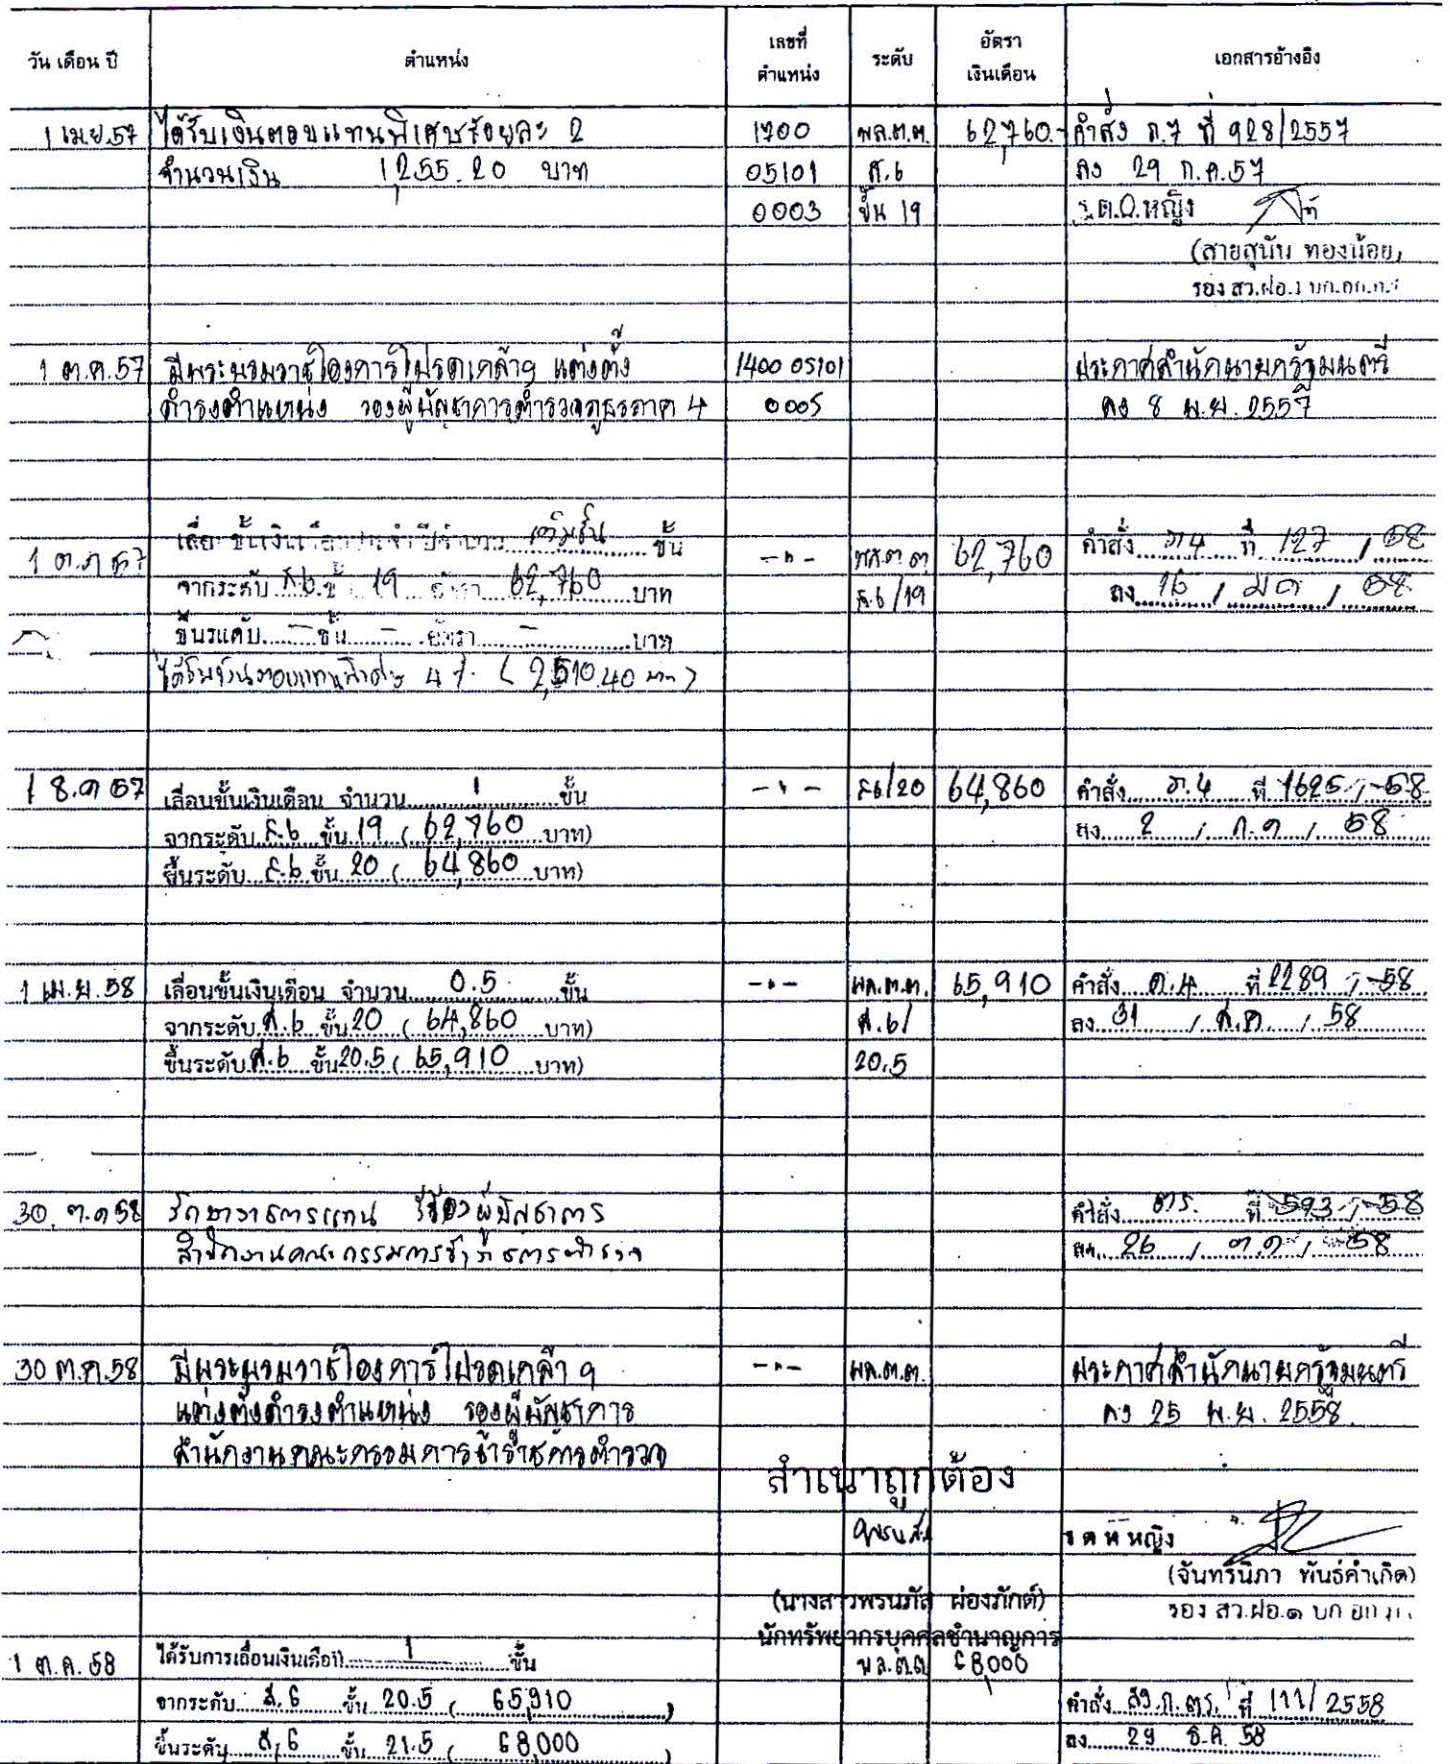 วัน เดือน ปี ตำแหน่ง เลขที่ตำแหน่ง ระดับ อัตราเงินเดือน เอกสารอ้างอิง
1 เม.ย.57 ได้รับเงินตอบแทนพิเศษร้อยละ 2 1700 พล.ต.ต. 62,760.- คำสั่ง ภ.7 ที่ 928/2557
จำนวนเงิน 1,255.20 บาท 05101 ส.6 ลง 29 ก.ค.57
0003 ขั้น 19 ร.ต.อ.หญิง
(สายสุนัน ทองน้อย)
รอง สว.ฝอ.1
1 ต.ค.57 มีพระบรมราชโองการโปรดเกล้าฯ แต่งตั้ง 1400 05101 ประกาศสำนักนายกรัฐมนตรี
ดำรงตำแหน่ง รองผู้บัญชาการตำรวจภูธรภาค 4 0005 ลง 8 พ.ย. 2557
1 ต.ค 57 ขั้น -"- พล.ต.ต. 62,760 คำสั่ง ภ4 ที่ 127 / 58
จากระดับ ส.6 ขั้น 19 อัตรา 62,760 บาท ส.6/19 ลง 16 / มค / 58
ขึ้นระดับ - ขั้น - อัตรา - บาท
ได้รับเงินตอบแทนพิเศษ 4% (2,510.40 บาท)
1 ต.ค 57 เลื่อนขั้นเงินเดือน จำนวน 1 ขั้น -"- ส.6/20 64,860 คำสั่ง ภ.4 ที่ 1625 / 58
จากระดับ ส.6 ขั้น 19 ( 62,760 บาท) ลง 2 / ก.ค / 58
ขึ้นระดับ ส.6 ขั้น 20 ( 64,860 บาท)
1 เม.ย. 58 เลื่อนขั้นเงินเดือน จำนวน 0.5 ขั้น -"- พล.ต.ต. 65,910 คำสั่ง ภ.4 ที่ 2289 / 58
จากระดับ ส.6 ขั้น 20 ( 64,860 บาท) ส.6/ ลง 31 / ส.ค. / 58
ขึ้นระดับ ส.6 ขั้น 20.5 ( 65,910 บาท) 20.5
30 ต.ค 58 รักษาราชการแทน รองผู้บัญชาการ คำสั่ง ตร. ที่ 593 / 58
สำนักงานคณะกรรมการข้าราชการตำรวจ ลง 26 / ต.ค / 58
30 ต.ค.58 มีพระบรมราชโองการโปรดเกล้าฯ -"- พล.ต.ต. ประกาศสำนักนายกรัฐมนตรี
แต่งตั้งดำรงตำแหน่ง รองผู้บัญชาการ ลง 25 พ.ย. 2558
สำนักงานคณะกรรมการข้าราชการตำรวจ
สำเนาถูกต้อง
หญิง
(จันทร์นิภา พันธ์คำเกิด)
(นางสาวพรนภัส ผ่องภักต์) รอง สว.ฝอ.๑ บก
นักทรัพยากรบุคคลชำนาญการ
1 ต.ค. 58 ได้รับการเลื่อนเงินเดือน 1 ขั้น พล.ต.ต 68,000
จากระดับ ส.6 ขั้น 20.5 ( 65,910 ) คำสั่ง สง.ก.ตร. ที่ 111/2558
ขึ้นระดับ ส.6 ขั้น 21.5 ( 68,000 ) ลง 29 ธ.ค. 58